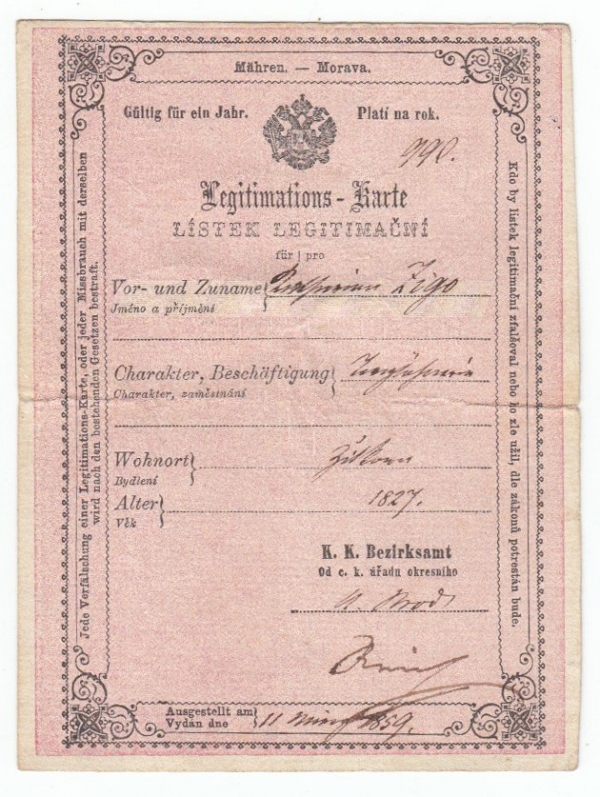 Mähren. — Morava.
Gültig für ein Jahr. Platí na rok.
990.
Legitimations-Karte
LÍSTEK LEGITIMAČNÍ
für | pro
Vor- und Zuname Zigo
Jméno a příjmění
Charakter, Beschäftigung
Charakter, zaměstnání
Wohnort
Bydlení
Alter 1827.
Věk
K. K. Bezirksamt
Od c. k. úřadu okresního
Brod
Ausgestellt am 11 1859.
Vydán dne
Jede Verfälschung einer Legitimations-Karte, oder jeder Missbrauch mit derselben
wird nach den bestehenden Gesetzen bestraft.
Kdo by lístek legitimační zfalšoval nebo ho zle užil, dle zákonů potrestán bude.